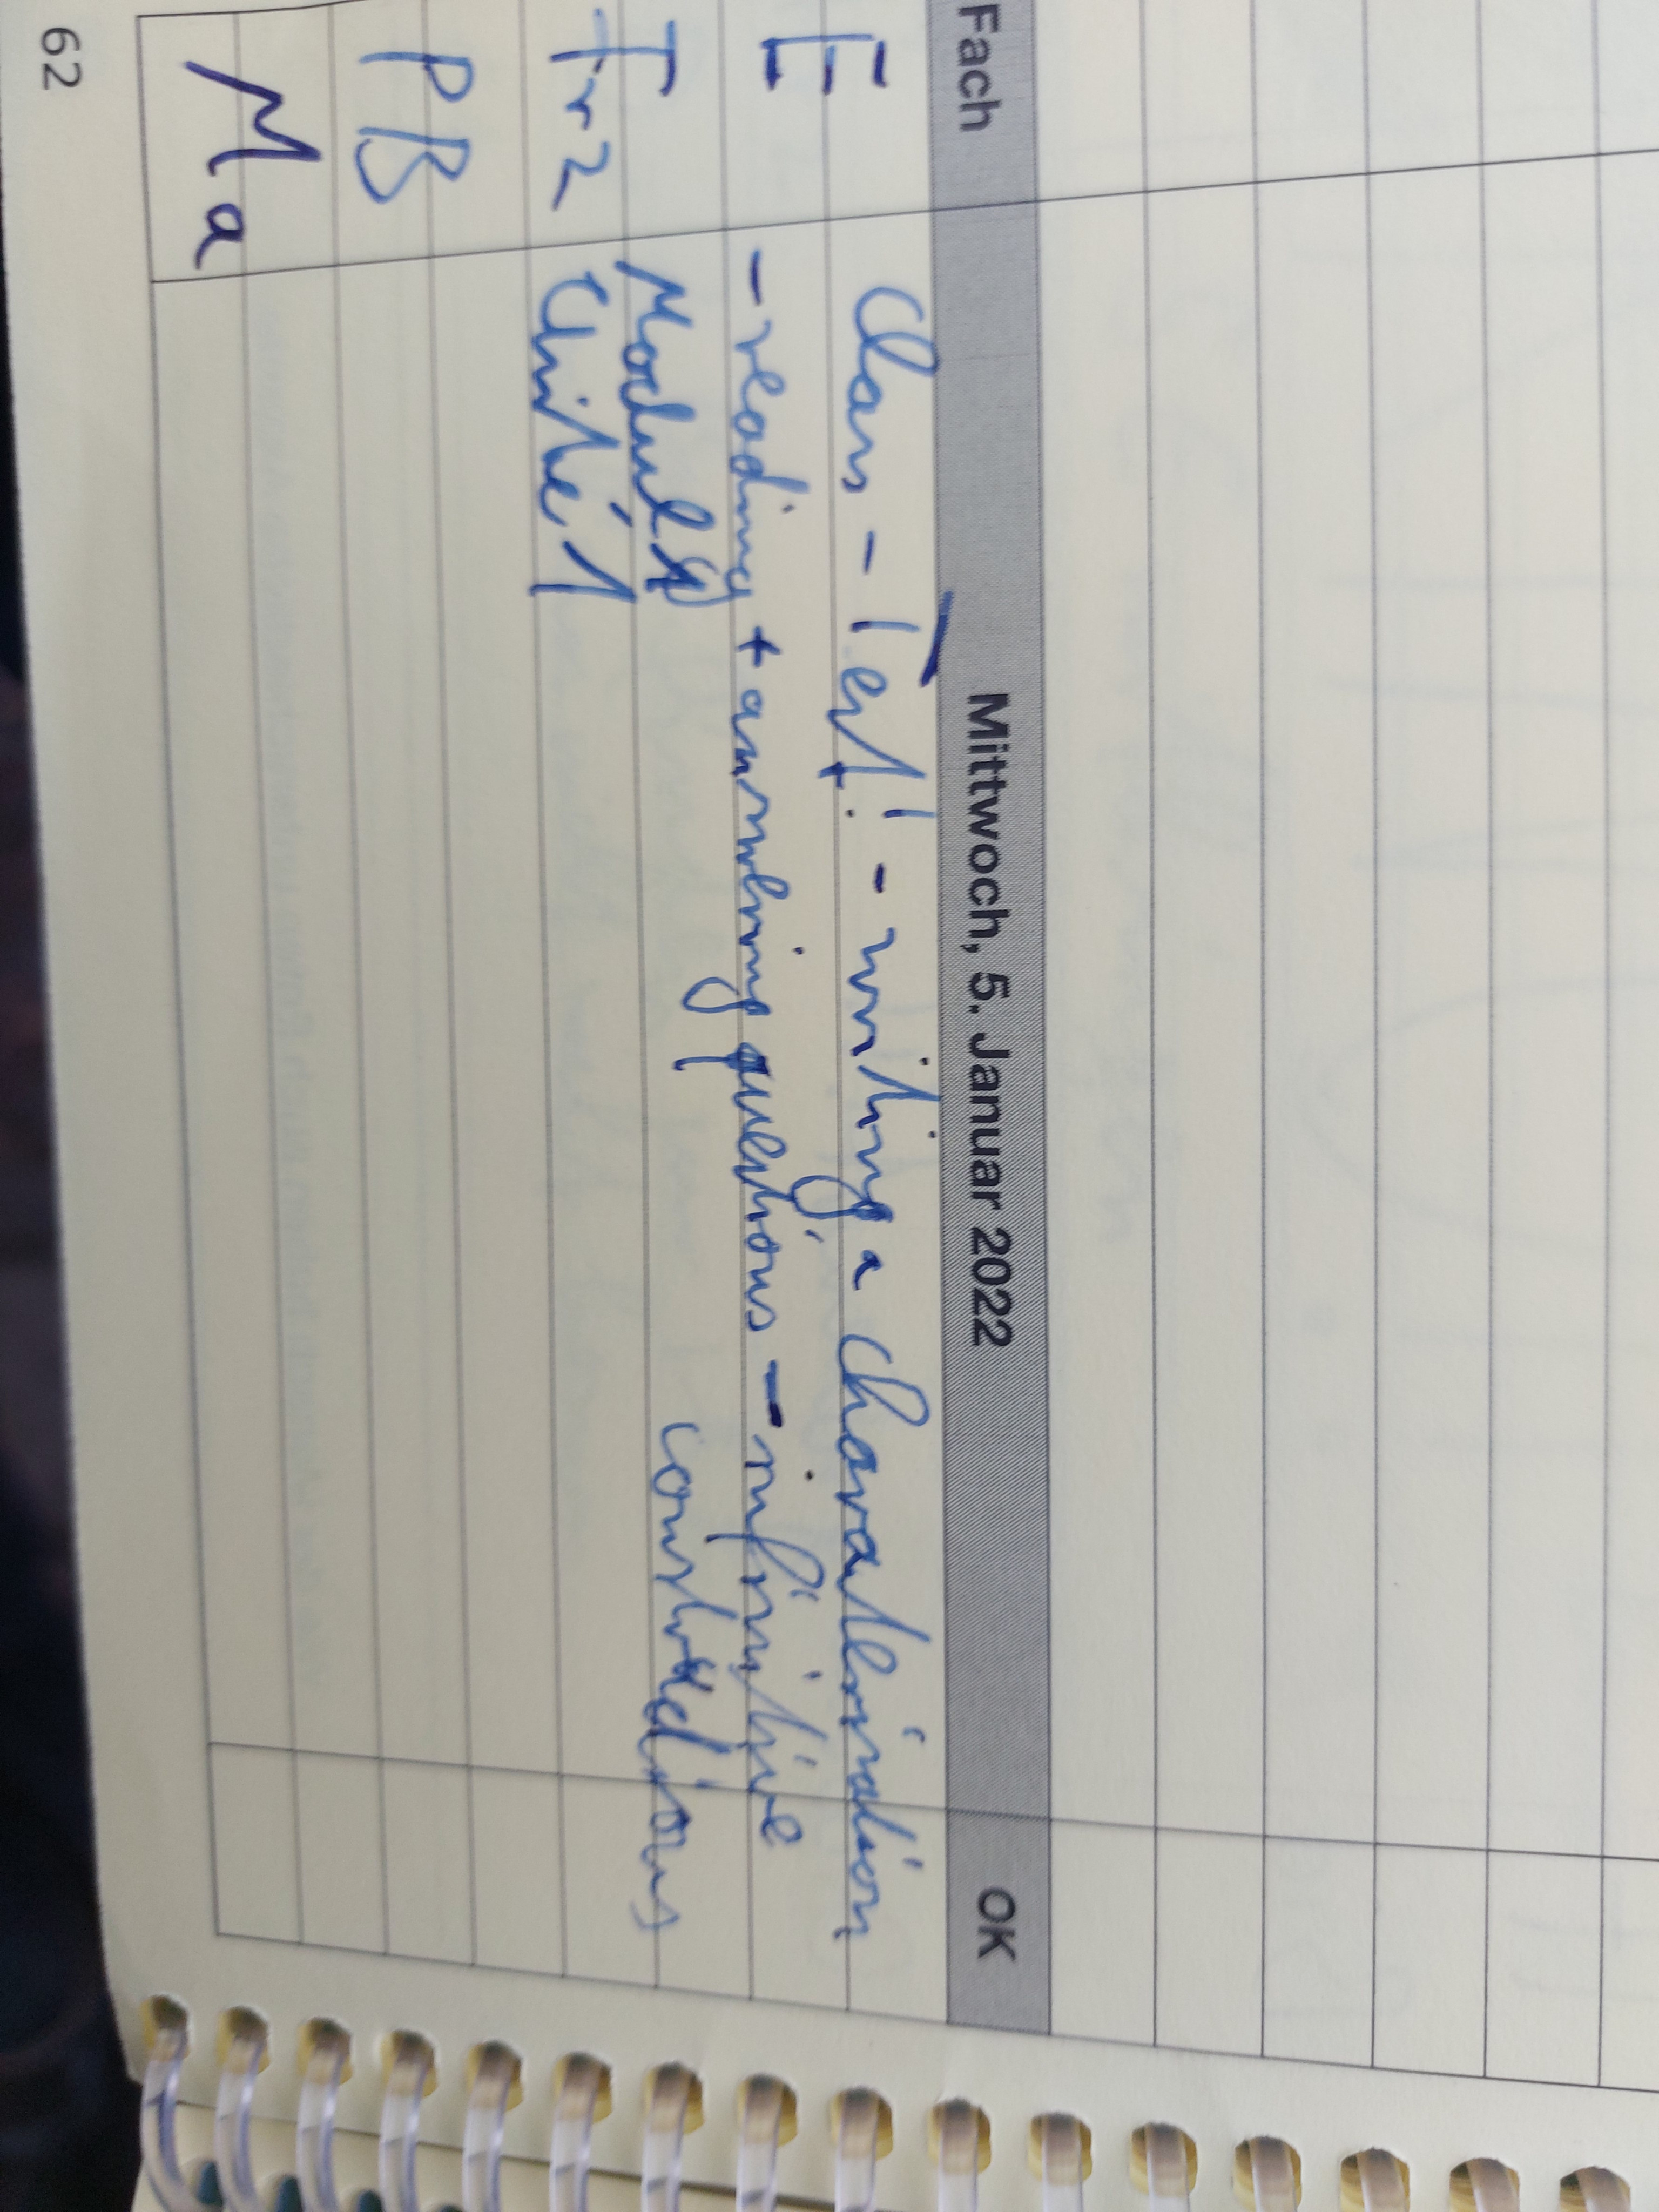 Fach Mittwoch, 5. Januar 2022 OK
E Class-Test! - writing a characterisation
- reading + answering questions - infinitive
Fr2 Module constructions
Unité 1
PB
Ma
62